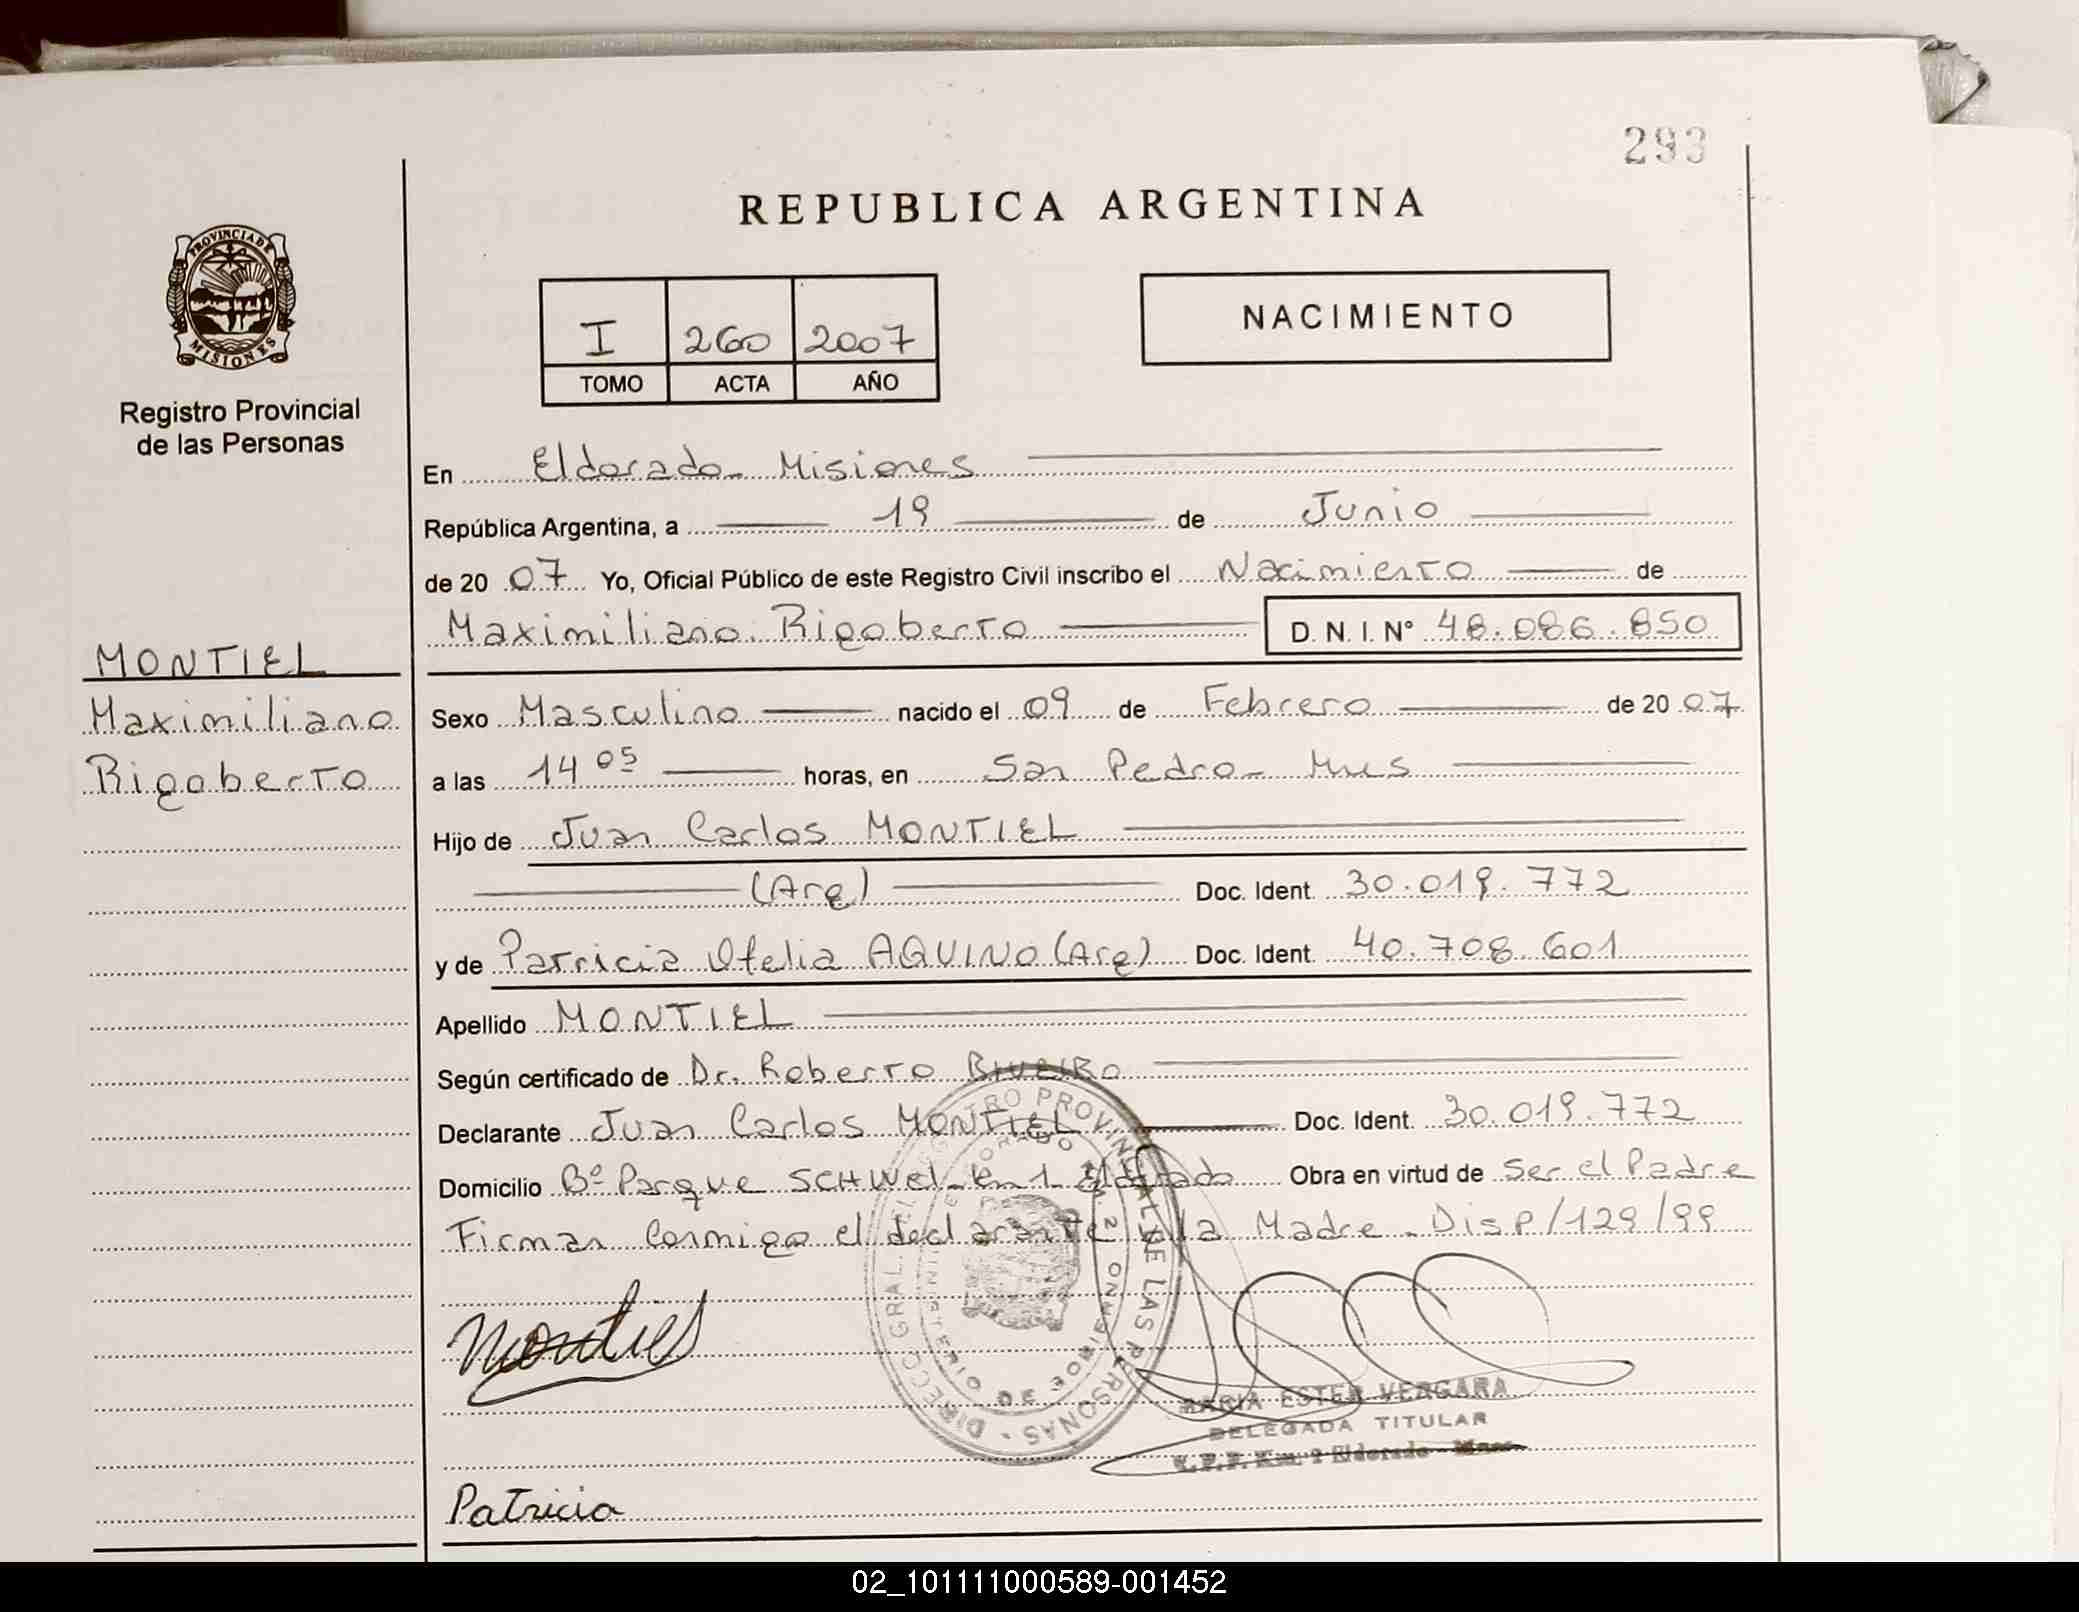 293
REPUBLICA ARGENTINA
PROVINCIA DE
MISIONES
Registro Provincial
de las Personas
I 260 2007
TOMO ACTA AÑO
NACIMIENTO
En Eldorado - Misiones
República Argentina, a 19 de Junio
de 20 07 Yo, Oficial Público de este Registro Civil inscribo el Nacimiento de
Maximiliano Rigoberto D. N. I. N° 48.086.850
MONTIEL
Maximiliano
Rigoberto
Sexo Masculino nacido el 09 de Febrero de 20 07
a las 14 05 horas, en San Pedro - Mnes
Hijo de Juan Carlos MONTIEL
(Arg) Doc. Ident. 30.019.772
y de Patricia Ofelia AQUINO (Arg) Doc. Ident. 40.708.601
Apellido MONTIEL
Según certificado de Dr. Roberto RIVEIRO
Declarante Juan Carlos MONTIEL Doc. Ident. 30.019.772
Domicilio Bº Parque SCHWel - Km 1 - Eldorado Obra en virtud de Ser el Padre
Firman conmigo el declarante y la Madre - Disp/129/99
DIRECC. GRAL. DEL REGISTRO PROVINCIAL DE LAS PERSONAS
MINISTERIO DE GOBIERNO
Montiel
MARIA ESTER VERGARA
DELEGADA TITULAR
Eldorado - Mnes.
Patricia
02_101111000589-001452